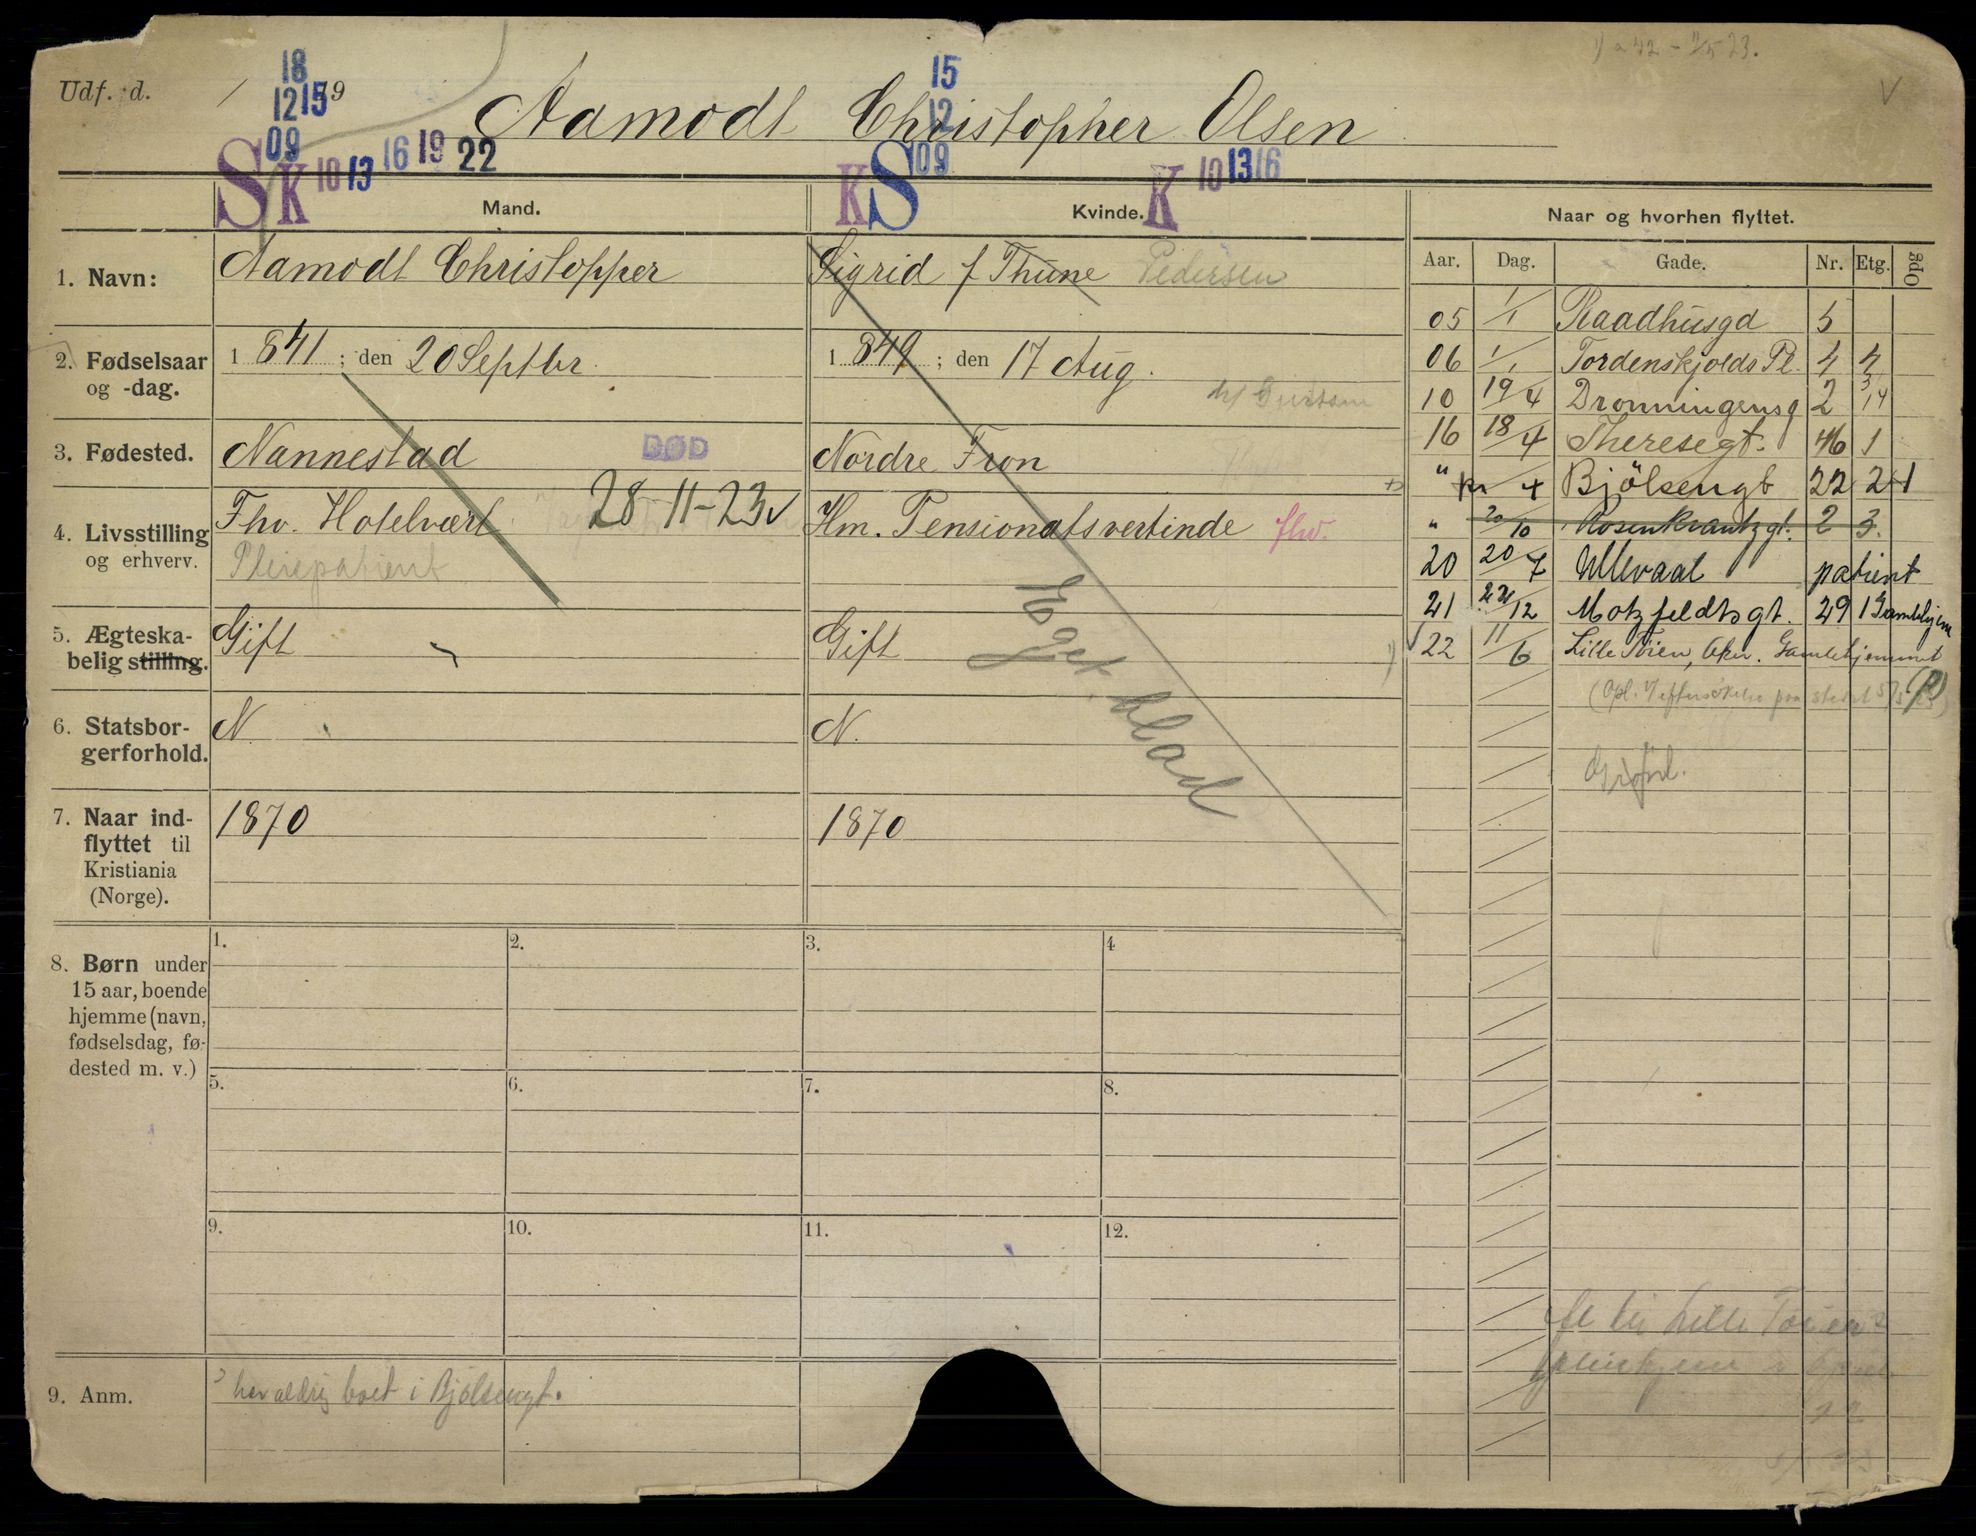 Udf. d. / 19
18
12 15
09
S K 10 13 16 19 22
Aamodt Christopher Olsen
15
12
09
K S K 10 13 16
Mand.
Kvinde.
Naar og hvorhen flyttet.
Aar. Dag. Gade. Nr. Etg. Opg
1. Navn:
Aamodt Christopher
Sigrid f Thune Pedersen
2. Fødselsaar
og -dag.
1841; den 20 Septbr.
1849; den 17 Aug.
3. Fødested.
Nannestad DØD
28-11-23 v
Nordre Fron
4. Livsstilling
og erhverv.
Fhv. Hotelvært
Pleiepatient
Hm. Pensionatsvertinde fhv.
5. Ægteska-
belig stilling.
Gift
Gift
Eget blad
6. Statsbor-
gerforhold.
N
N.
7. Naar ind-
flyttet til
Kristiania
(Norge).
1870
1870
05 1/1 Raadhusgd 5
06 1/1 Tordenskjolds Pl. 4 4
10 19/4 Dronningensg 2 3/14
16 18/4 Theresegt. 46 1
" 4 Bjölsengt 22 2+1
" 20/10 Rosenkrantzgt. 2 3.
20 20/7 Ullevaal patient
21 22/12 Motzfeldtsgt. 29 1 Gamlehjem
22 11/6 Lille Tøien, Aker. Gamlehjemmet
8. Børn under
15 aar, boende
hjemme (navn,
fødselsdag, fø-
dested m. v.)
1. 2. 3. 4
5. 6. 7. 8.
9. 10. 11. 12.
9. Anm.
har aldrig boet i Bjölsengt.